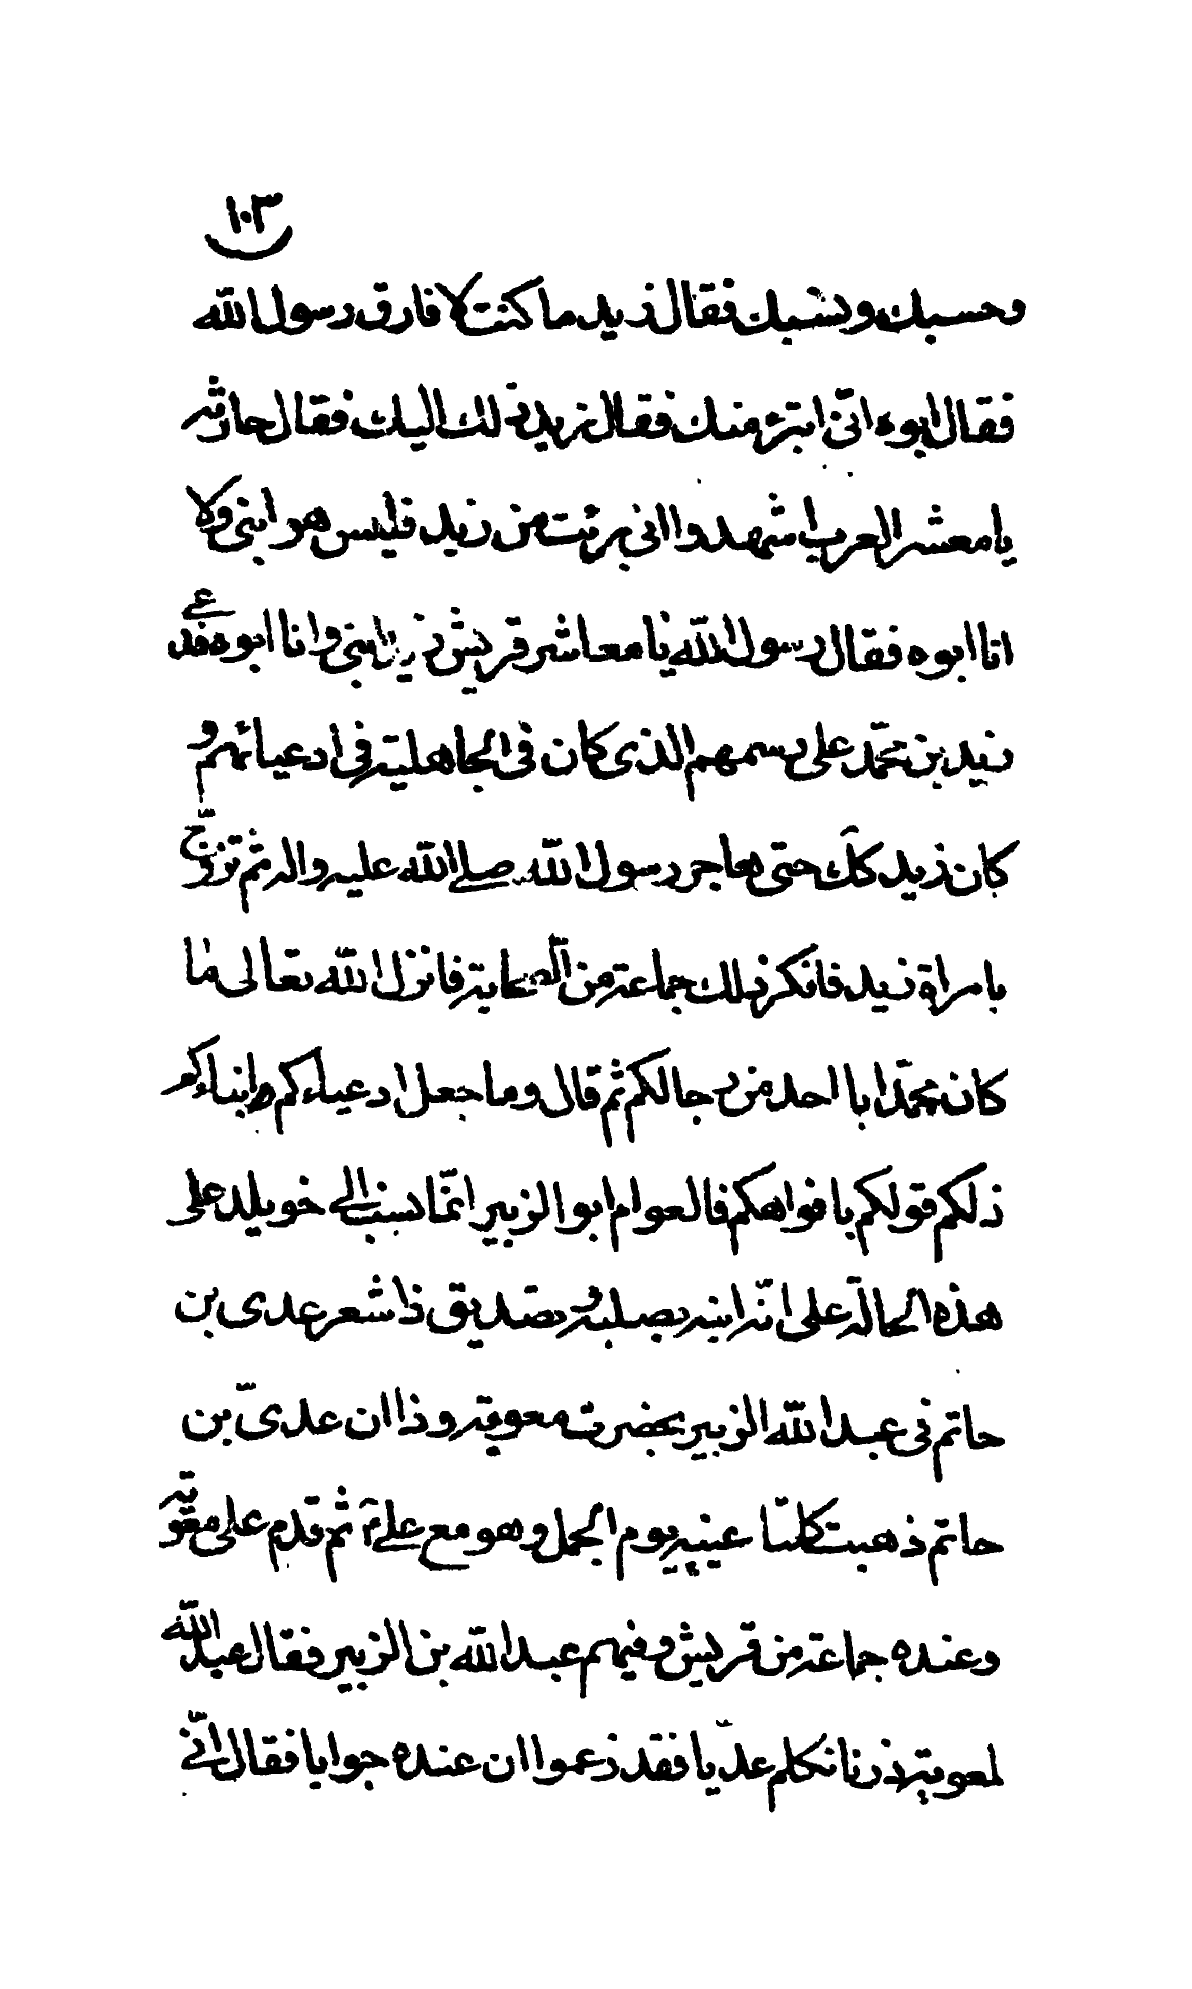 ١٠٣
وحسبك ونسبك فقال زيد ما كنت لا فارق رسول الله
فقال ابوه انّى ابترئ منك فقال زيد ذلك اليك فقال حارثه
يا معشر العرب اشهدوا انى برئت من زيد فليس هو ابنى ولا
انا ابوه فقال رسول الله يا معاشر قريش زيد ابنى وانا ابوه فدعى
زيد بن محمّد على رسمهم الذى كان فى الجاهلية فى ادعيائهم و
كان زيد كك حتى هاجر رسول الله صلے الله عليه واله ثم تزوّج
بامراة زيد فانكر ذلك جماعة من الصحابة فانزل الله تعالى ما
كان محمّد ابا احد من رجالكم ثم قال وما جعل ادعياءكم ابناءكم
ذلكم قولكم بافواهكم فالعوام ابو الزبير انمّا ينسب الے خويلد على
هذه الحالة على انّه ابنه بصلبه وتصديق ذا شعر عدى بن
حاتم فى عبد الله الزبير بحضرت معوية وذا ان عدىّ بن
حاتم ذهبت كلتا عينيه يوم الجمل وهو مع علے ثم قدم على معوية
وعنده جماعة من قريش وفيهم عبد الله بن الزبير فقال عبد الله
لمعوية ذرنا نكلم عدّيا فقد زعموا ان عنده جوابا فقال انّے